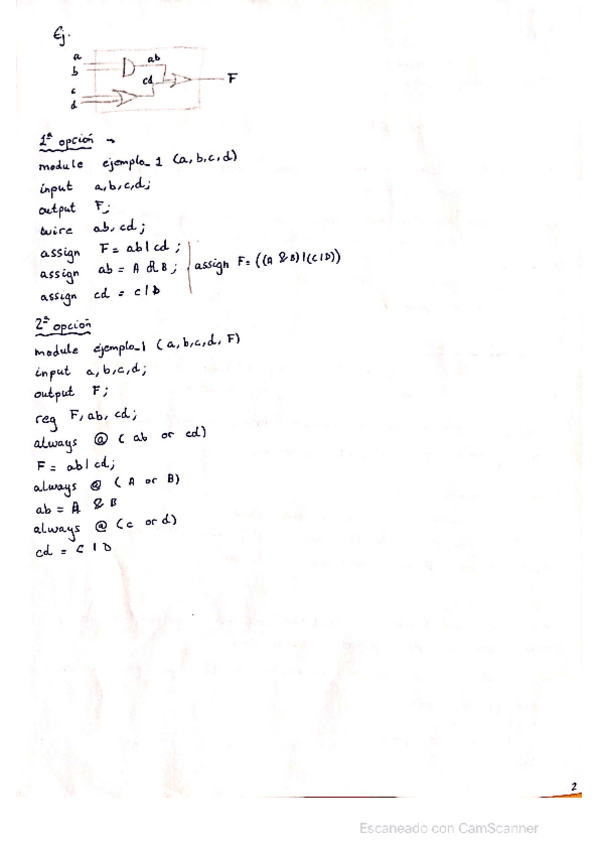 Ej.
a
b
ab
c
d
cd
F
1ª opción →
module ejemplo_1 (a,b,c,d)
input a,b,c,d;
output F;
wire ab, cd;
assign F = ab|cd ;
assign ab = A & B ; assign F= ((A & B)|(C|D))
assign cd = C|D
2ª opción
module ejemplo_1 (a,b,c,d, F)
input a,b,c,d;
output F;
reg F, ab, cd;
always @ ( ab or cd)
F = ab|cd;
always @ ( A or B)
ab = A & B
always @ (c or d)
cd = C | D
2
Escaneado con CamScanner